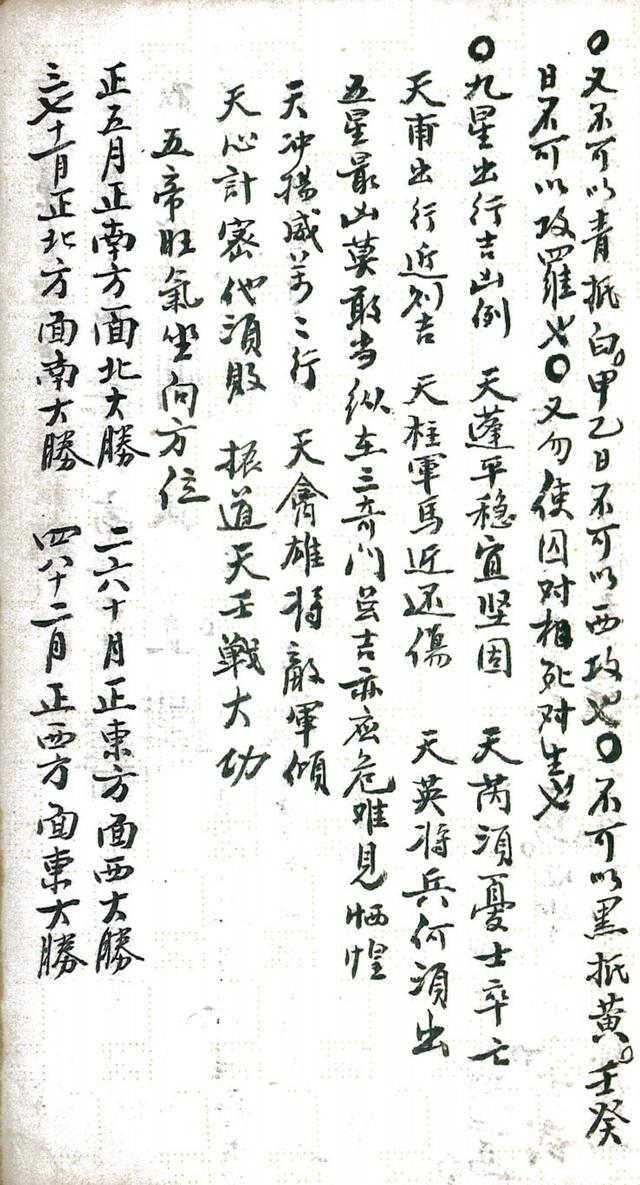 ○又不可以青抵白。甲乙日不可以西攻也○不可以黑抵黄。壬癸
日不可以攻羅也○又勿使囚对相死对生也
○九星出行吉凶例　天蓬平穏宜坚固　天芮須憂士卒亡
天甫出行近别吉　天柱軍馬近还傷　天英将兵何須出
五星最凶莫敢当纵在三奇门吕吉亦应危难見恓惶
天冲揚威萬々行　天禽雄将敵軍傾
天心計密他須敗　振道天壬戰大功
五帝旺氣坐向方位
正五月正南方面北大勝　二六十月正東方面西大勝
三七十一月正北方面南大勝　四八十二月正西方面東大勝